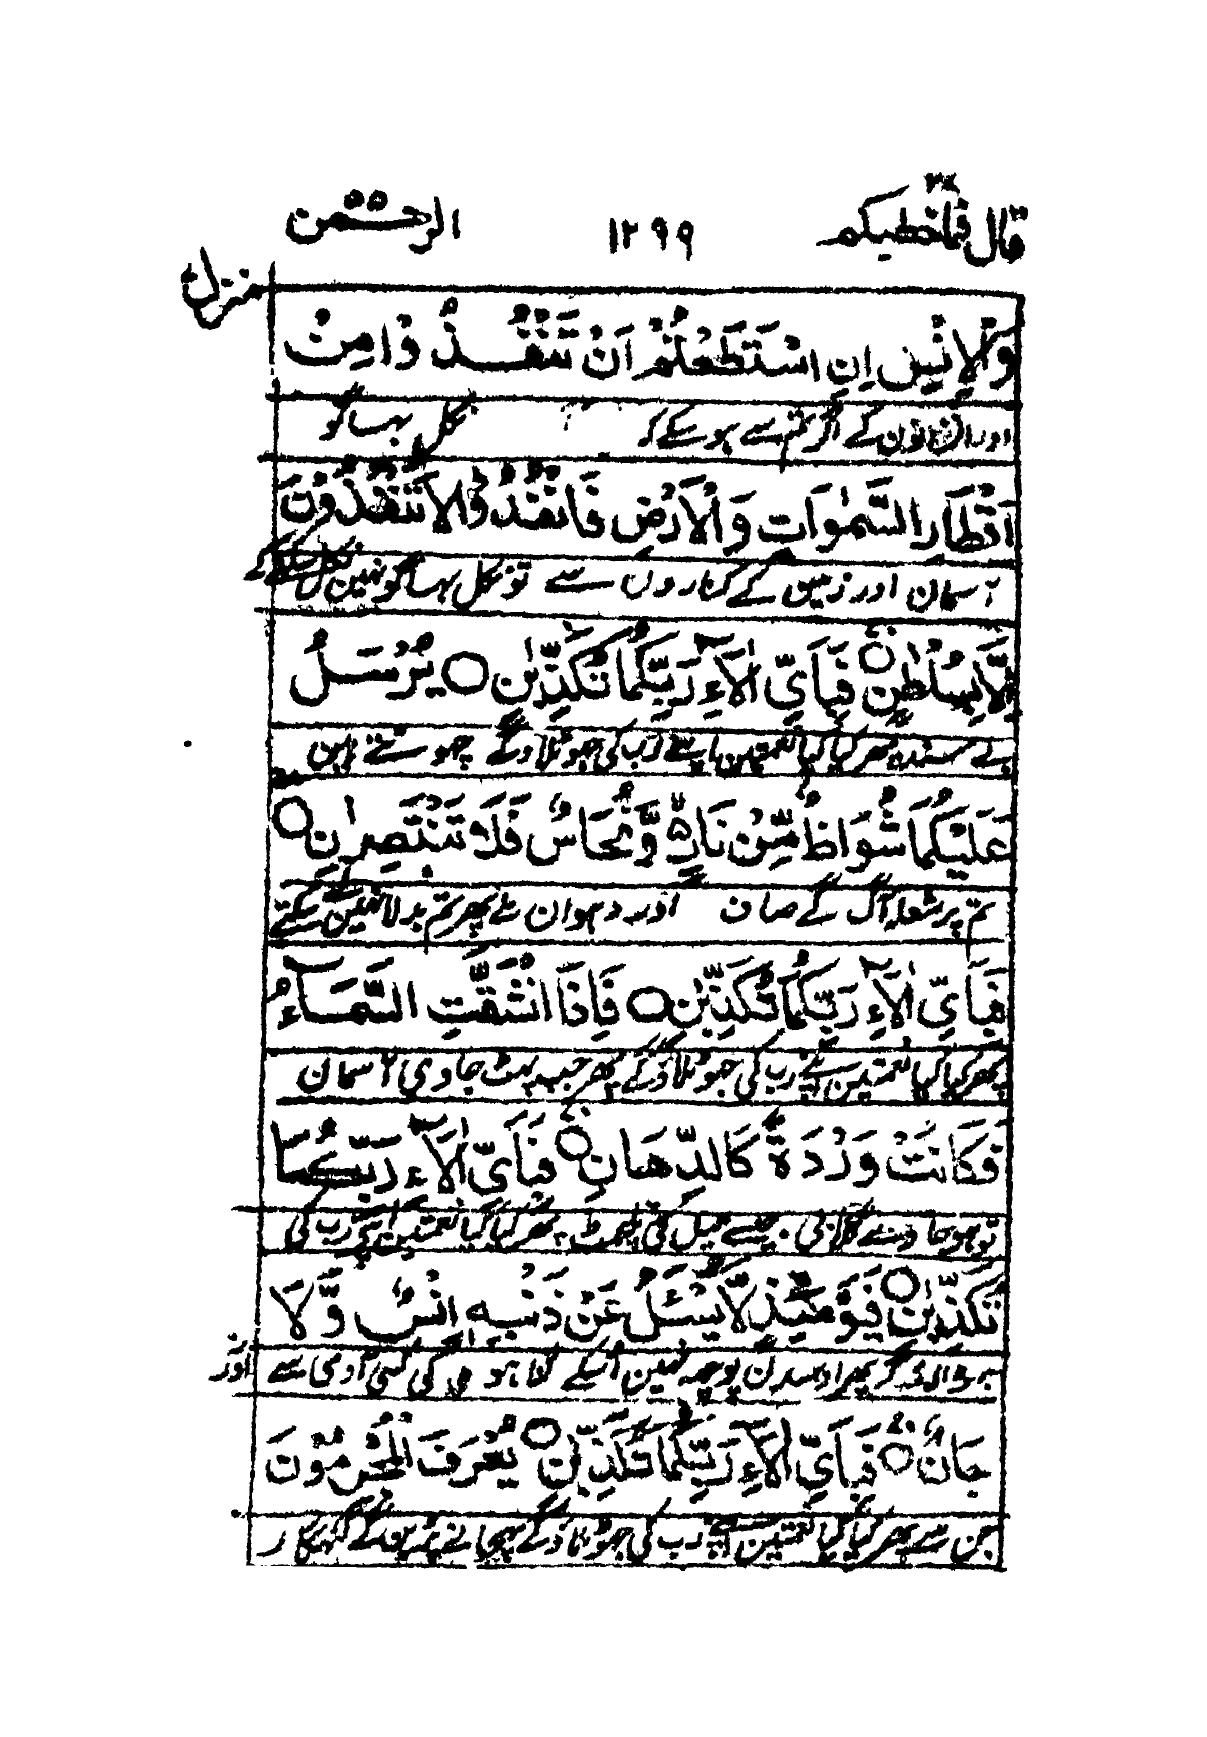 قال فما خطبكم ٢٧ ١٢٩٩ الرحمٰن ٥٥
منزل
وَالْاِنْسِ اِنِ اسْتَطَعْتُمْ اَنْ تَنْفُذُوْا مِنْ
اور انسانون کے اگر تم سے ہو سکے کہ نکل بھاگو
اَقْطَارِ السَّمٰوَاتِ وَالْاَرْضِ فَانْفُذُوْا لَا تَنْفُذُوْنَ
آسمان اور زمین کے کنارون سے تو نکل بھاگو نہین نکل سکو گے
اِلَّا بِسُلْطٰنٍ ○ فَبِاَيِّ اٰلَآءِ رَبِّكُمَا تُكَذِّبٰنِ ○ يُرْسَلُ
بے سند پھر کیا کیا نعمتین اپنے رب کی جھوٹلاؤ گے چھوٹتے ہین
عَلَيْكُمَا شُوَاظٌ مِّنْ نَّارٍ وَّنُحَاسٌ فَلَا تَنْتَصِرَانِ ○
تم پر شعلہ آگ کے صاف اور دہوان ملے پھر تم بدلا نہین لے سکتے
فَبِاَيِّ اٰلَآءِ رَبِّكُمَا تُكَذِّبٰنِ ○ فَاِذَا انْشَقَّتِ السَّمَآءُ
پھر کیا کیا نعمتین اپنے رب کی جھوٹلاؤ گے پھر جب پھٹ جاوی آسمان
فَكَانَتْ وَرْدَةً كَالدِّهَانِ ○ فَبِاَيِّ اٰلَآءِ رَبِّكُمَا
تو ہو جاوے گلابی جیسے تیل کی تلچھٹ پھر کیا کیا نعمتین اپنے رب کی
تُكَذِّبٰنِ ○ فَيَوْمَئِذٍ لَّا يُسْئَلُ عَنْ ذَنْۢبِهٖ اِنْسٌ وَّلَا
پھر اوسدن پوچھ نہین اُسکے گناہ کی کسی آدمی سے اور
جَانٌّ ○ فَبِاَيِّ اٰلَآءِ رَبِّكُمَا تُكَذِّبٰنِ ○ يُعْرَفُ الْمُجْرِمُوْنَ
جن سے پھر کیا کیا نعمتین اپنے رب کی جھوٹلاؤ گے پہچانے پڑین گے گنہگار